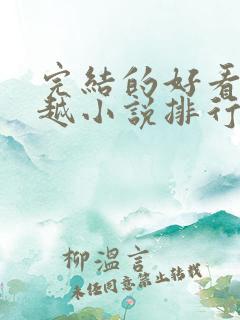 完結的好看
越小說排行
柳溫言
未经同意禁止转载